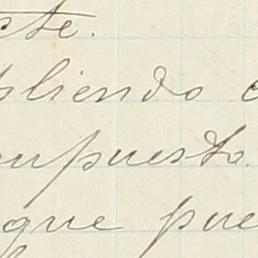 cte.
pliendo c
mpuesto.
que pue